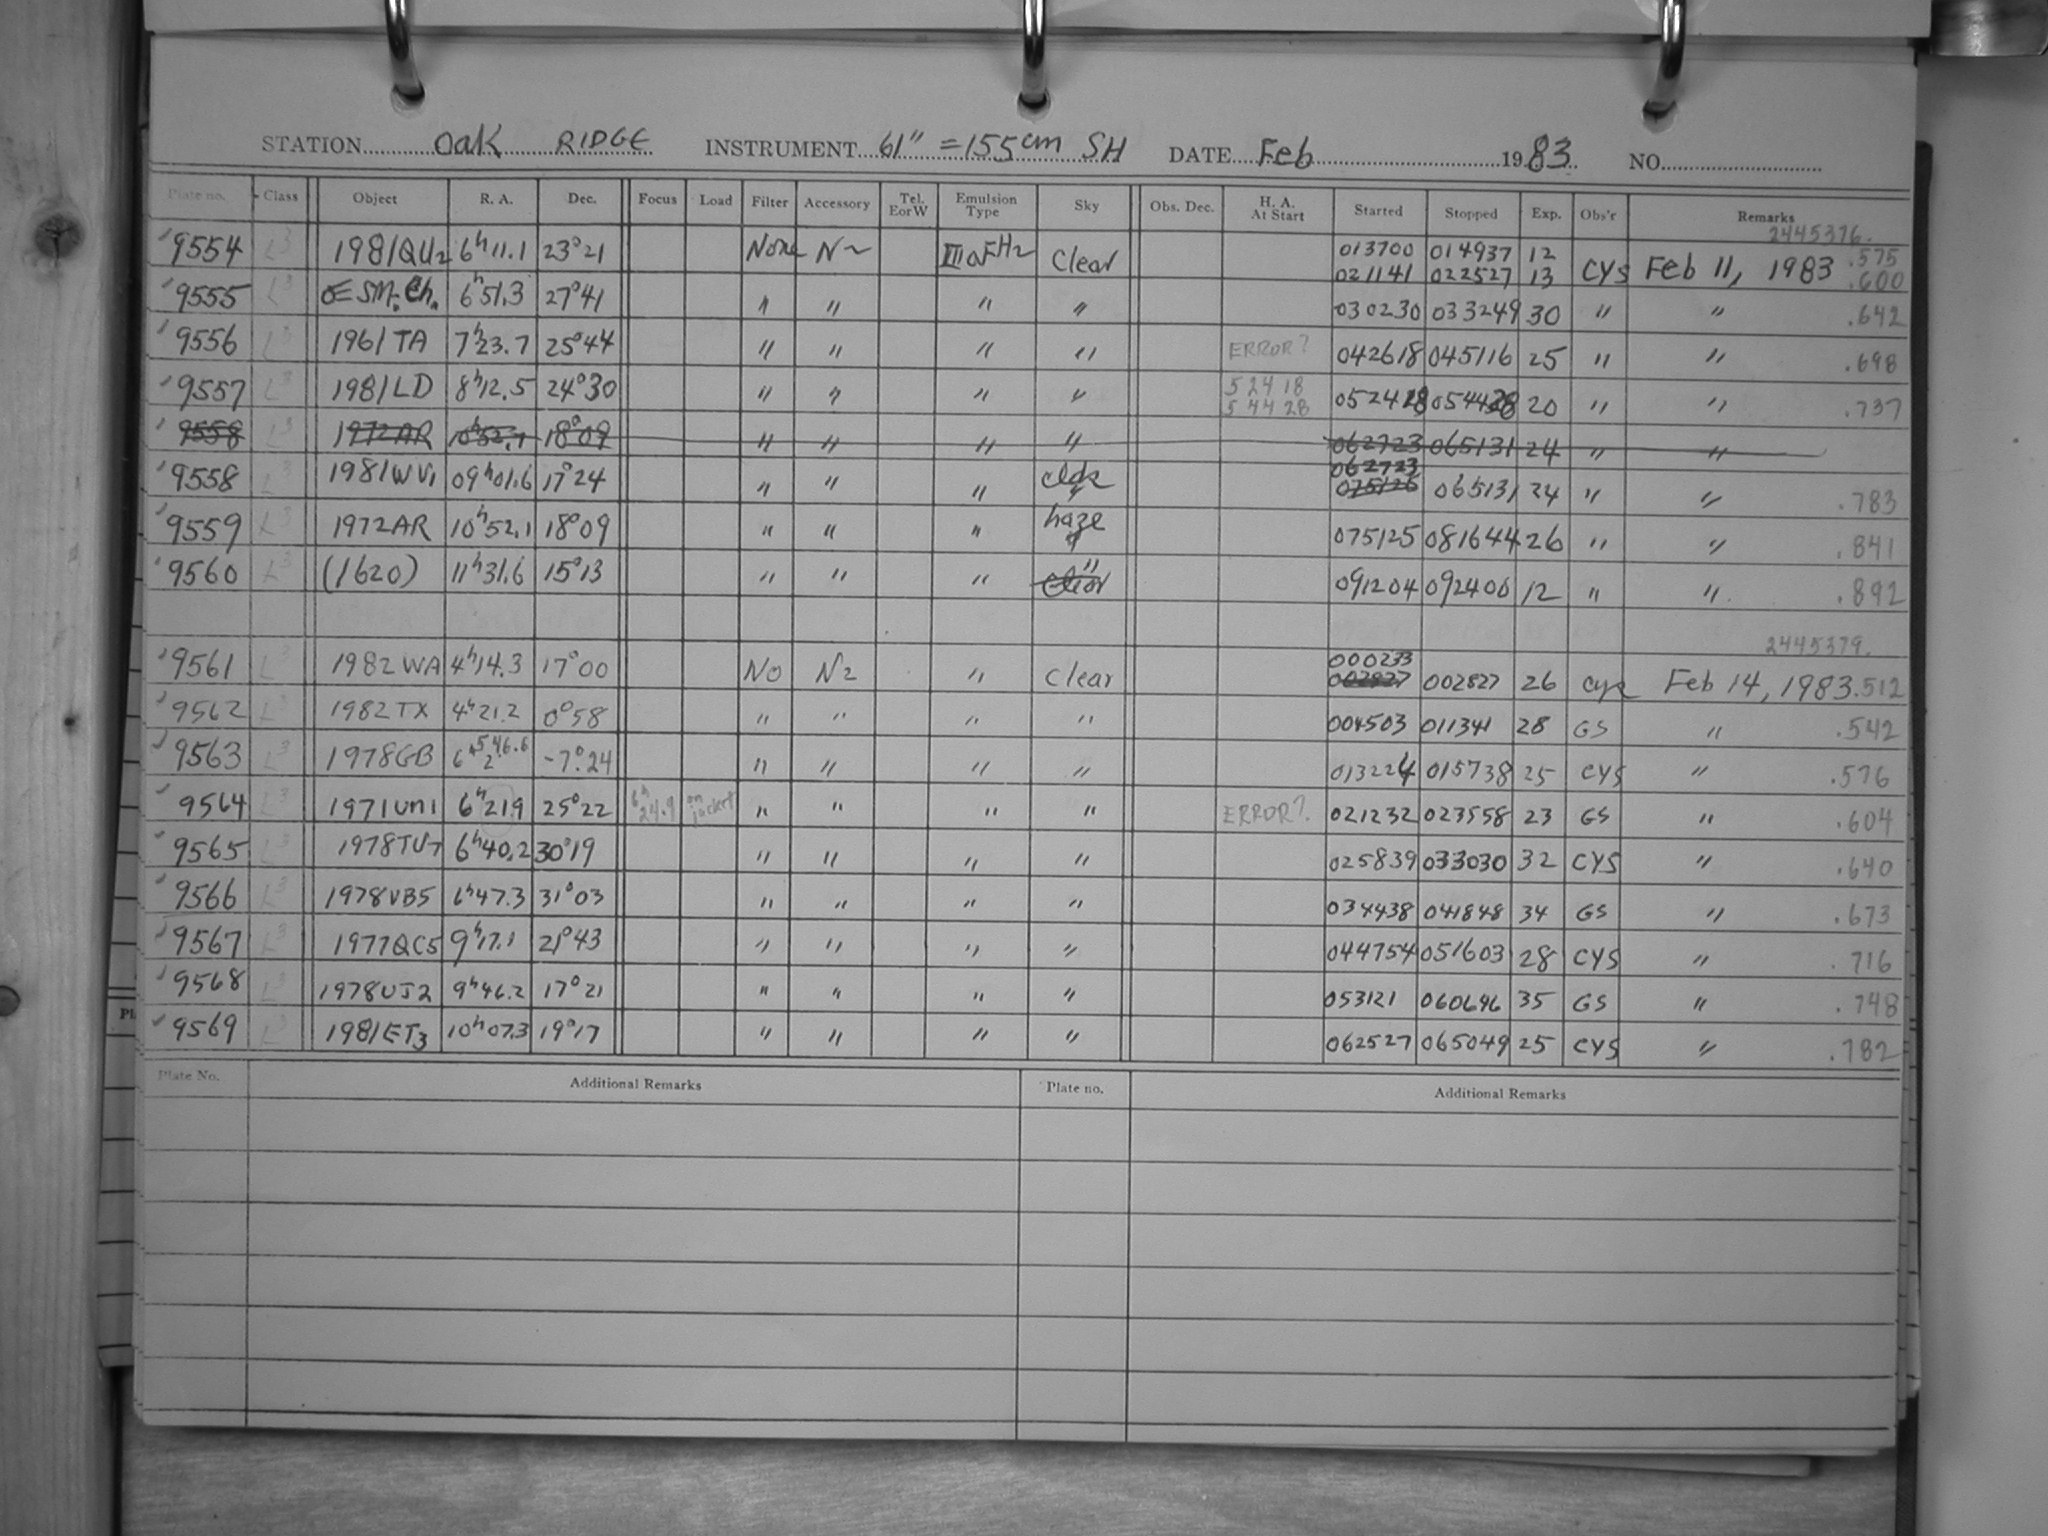 STATION Oak RIDGE INSTRUMENT 61" = 155cm SH DATE Feb 1983 NO.
Plate no. Class Object R. A. Dec. Focus Load Filter Accessory Tel. EorW Emulsion Type Sky Obs. Dec. H. A. At Start Started Stopped Exp. Obs'r Remarks
2445376.
9554 L3 1981QU2 6h11.1 23°21 None N2 IIIaF H2 Clear 013700 014937 12 CYS Feb 11, 1983 .575
021141 022527 13 .600
9555 L3 6h51.3 27°41 " " " " 030230 033249 30 " " .642
9556 L3 1961TA 7h23.7 25°44 " " " " ERROR? 042618 045116 25 " " .698
9557 L3 1981LD 8h12.5 24°30 " " " " 52418 052418 054428 20 " " .737
54428
9558 L3 1972AR 10h52.1 18°09 " " " " 062723 065131 24 " "
062723
9558 L3 1981WV1 09h01.6 17°24 " " " 075126 065131 24 " " .783
9559 L3 1972AR 10h52.1 18°09 " " " haze 075125 081644 26 " " .841
9560 L3 (1620) 11h31.6 15°13 " " " " clear 091204 092406 12 " " .892
2445379.
000233
9561 L3 1982WA 4h14.3 17°00 No N2 " Clear 002827 002827 26 CYS Feb 14, 1983 .512
9562 L3 1982TX 4h21.2 0°58 " " " " 004503 011341 28 GS " .542
9563 L3 1978GB -7°24 " " " " 013224 015738 25 CYS " .576
9564 L3 1971UM1 6h21.9 25°22 6h24.9 on jacket " " " " ERROR? 021232 023558 23 GS " .604
9565 L3 1978TU7 6h40.2 30°19 " " " " 025839 033030 32 CYS " .640
9566 L3 1978VB5 6h47.3 31°03 " " " " 034438 041848 34 GS " .673
9567 L3 1977QC5 9h17.1 21°43 " " " " 044754 051603 28 CYS " .716
9568 L3 1978UJ2 9h46.2 17°21 " " " " 053121 060646 35 GS " .748
9569 L3 1981ET3 10h07.3 19°17 " " " " 062527 065049 25 CYS " .782
Plate No. Additional Remarks Plate no. Additional Remarks